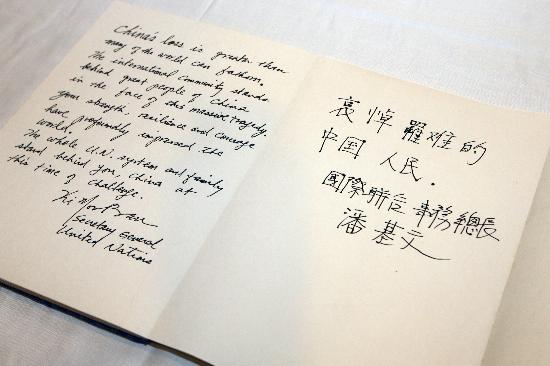 China's loss is greater than
many of the world can fathom.
The international community stands
behind great people of China
in the face of this massive tragedy.
Your strength, resilience and courage
have profoundly impressed the
world.
The whole U.N. system and family
stand behind you, China at
this time of challenge.
Ki Moon Ban
Secretary General
United Nations
哀悼 罹难的
中国 人民.
国際聯合 事務總長
潘基文